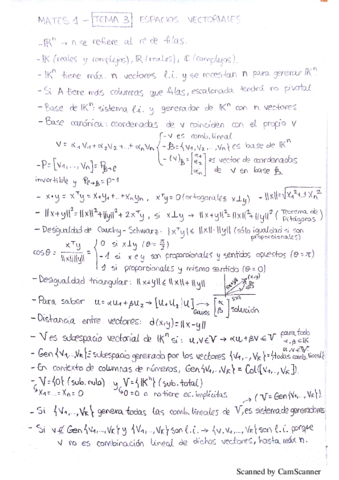 MATES 1 - TEMA 3 ESPACIOS VECTORIALES
- 𝕂ⁿ → n se refiere al nº de filas.
- 𝕂 (reales y complejos), ℝ (reales), ℂ (complejos).
- 𝕂ⁿ tiene máx. n vectores l.i. y se necesitan n para generar 𝕂ⁿ
- Si A tiene más columnas que filas, escalonada tendrá no pivotal
- Base de 𝕂ⁿ: sistema l.i. y generador de 𝕂ⁿ con n vectores
- Base canónica: coordenadas de v coinciden con el propio v
v = α₁v₁ + α₂v₂ + ... + αₙvₙ { - v es comb. lineal
- β = {v₁, v₂, ..., vₙ} es base de 𝕂ⁿ
- (v)β = [α₁ α₂ αₙ] es vector de coordenadas de v en base β
- P = [v₁, ..., vₙ] =
invertible y
- x·y = xᵀy = x₁y₁ + ... + xₙyₙ xᵀy = 0 (ortogonales x⊥y) - ||x|| = √x₁² + ... + xₙ²
- ||x+y||² = ||x||² + ||y||² + 2xᵀy, si x⊥y → ||x+y||² = ||x||² + ||y||² (Teorema de Pitágoras)
- Desigualdad de Cauchy-Schwarz: |xᵀy| ≤ ||x||·||y|| (sólo igualdad si son proporcionales)
cosθ = xᵀy / ||x||||y|| = { 0 si x⊥y (θ = π/2)
-1 si x e y son proporcionales y sentidos opuestos (θ = π)
1 si proporcionales y mismo sentido (θ = 0)
- Desigualdad triangular: ||x+y|| ≤ ||x|| + ||y||
- Para saber u = αu₁ + βu₂ → [u₁ u₂ | u] → Gauss [α β] solución
- Distancia entre vectores: d(x,y) = ||x-y||
- V es subespacio vectorial de 𝕂ⁿ si: u, v ∈ V → αu + βv ∈ V para todo α, β ∈ 𝕂 u, v ∈ V
- Gen{v₁, ..., vₖ} = subespacio generado por los vectores {v₁, ..., vₖ} = {todas comb. lineal}
- En contexto de columnas de números, Gen{v₁, ..., vₖ} = Col([v₁, ..., vₖ])
- V = {0} (sub. nulo) y V = {𝕂ⁿ} (sub. total)
x₁ = ... = xₙ = 0 0 = 0 o no tiene ec. implícitas (V = Gen{v₁, ..., vₖ})
- Si {v₁, ..., vₖ} genera todas las comb. lineales de V, es sistema de generadores
- Si v ∉ Gen{v₁, ..., vₖ} y {v₁, ..., vₖ} son l.i. → {v, v₁, ..., vₖ} son l.i. porque
v no es combinación lineal de dichos vectores, hasta
Scanned by CamScanner